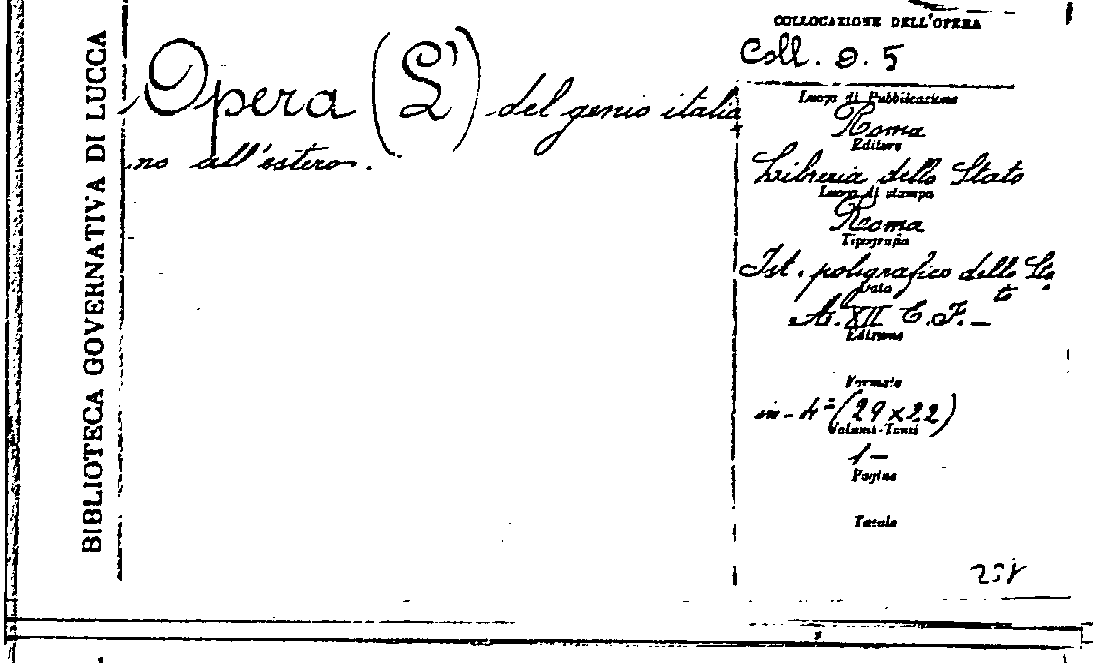 BIBLIOTECA GOVERNATIVA DI LUCCA
Opera (L') del genio italia
no all'estero.
COLLOCAZIONE DELL'OPERA
Coll. O. 5
Luogo di Pubblicazione
Roma
Editore
Libreria dello Stato
Luogo di stampa
Roma
Tipografia
Ist. poligrafico dello Sta
to
Data
A. XII E. F. —
Edizione
Formato
in-4° (29 x 22)
Volumi-Tomi
1 —
Pagine
Tavole